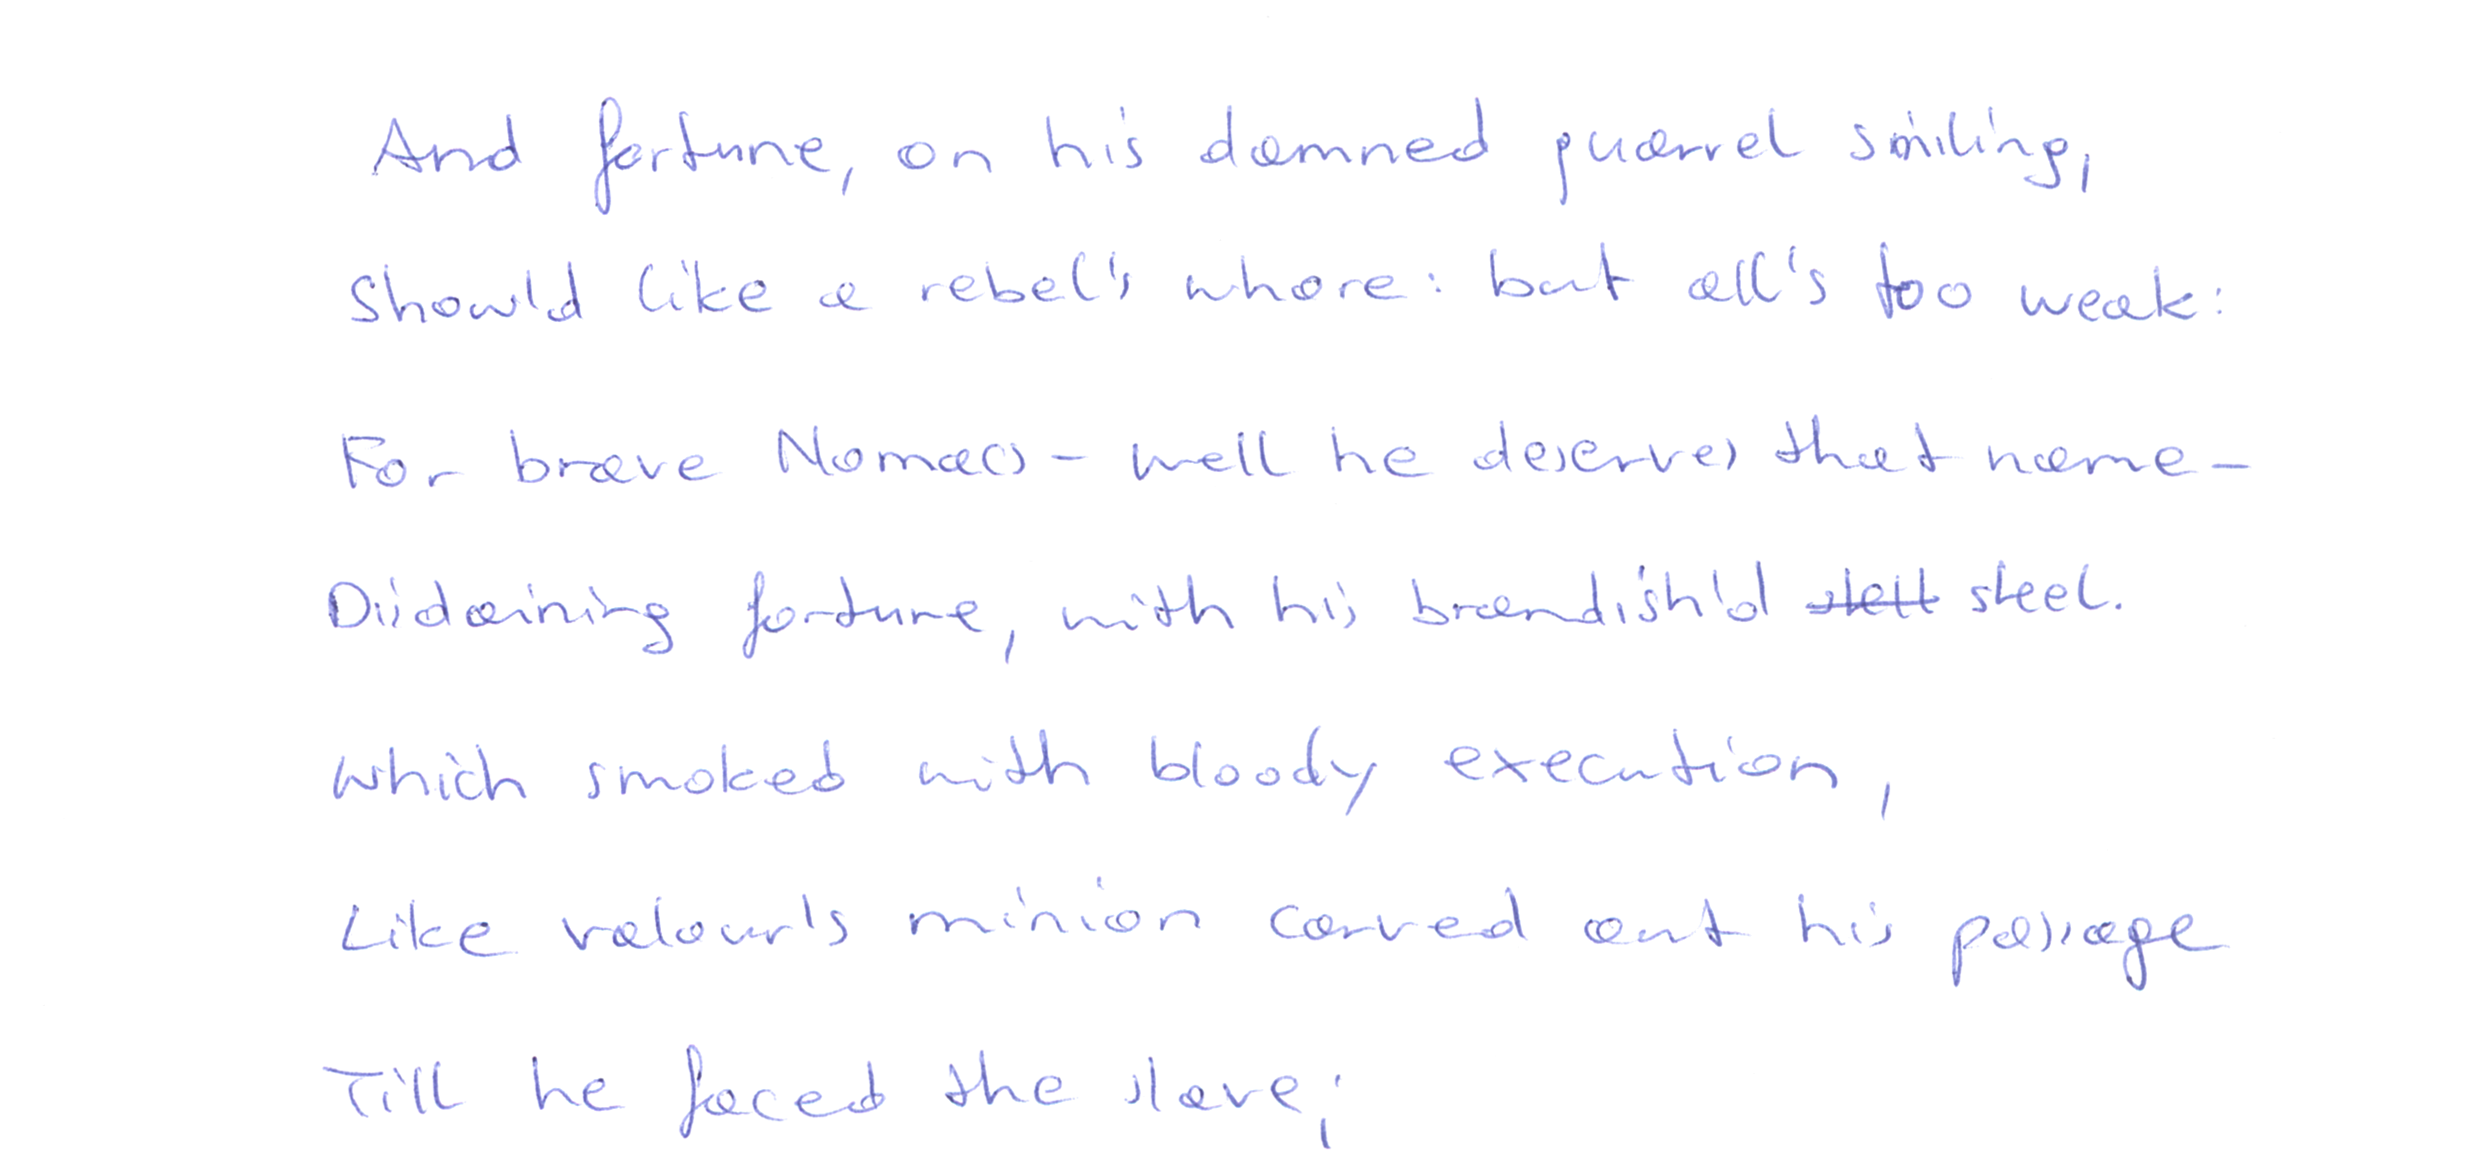 And fortune, on his damned quarrel smiling,
Should like a rebel's whore: but all's too weak:
For brave Nomacs - well he deserves that name -
Disdaining fortune, with his brandish'd steel.
Which smoked with bloody execution,
Like valour's minion carved out his passage
Till he faced the slave;